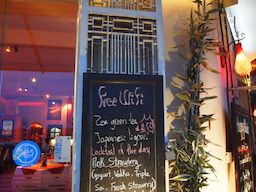 Free Wifi
Zen green tea
Japanese
Cocktail of the day
Pink Strawberry
(yogurt, Vodka, Triple
Sec, Fresh Strawberry)